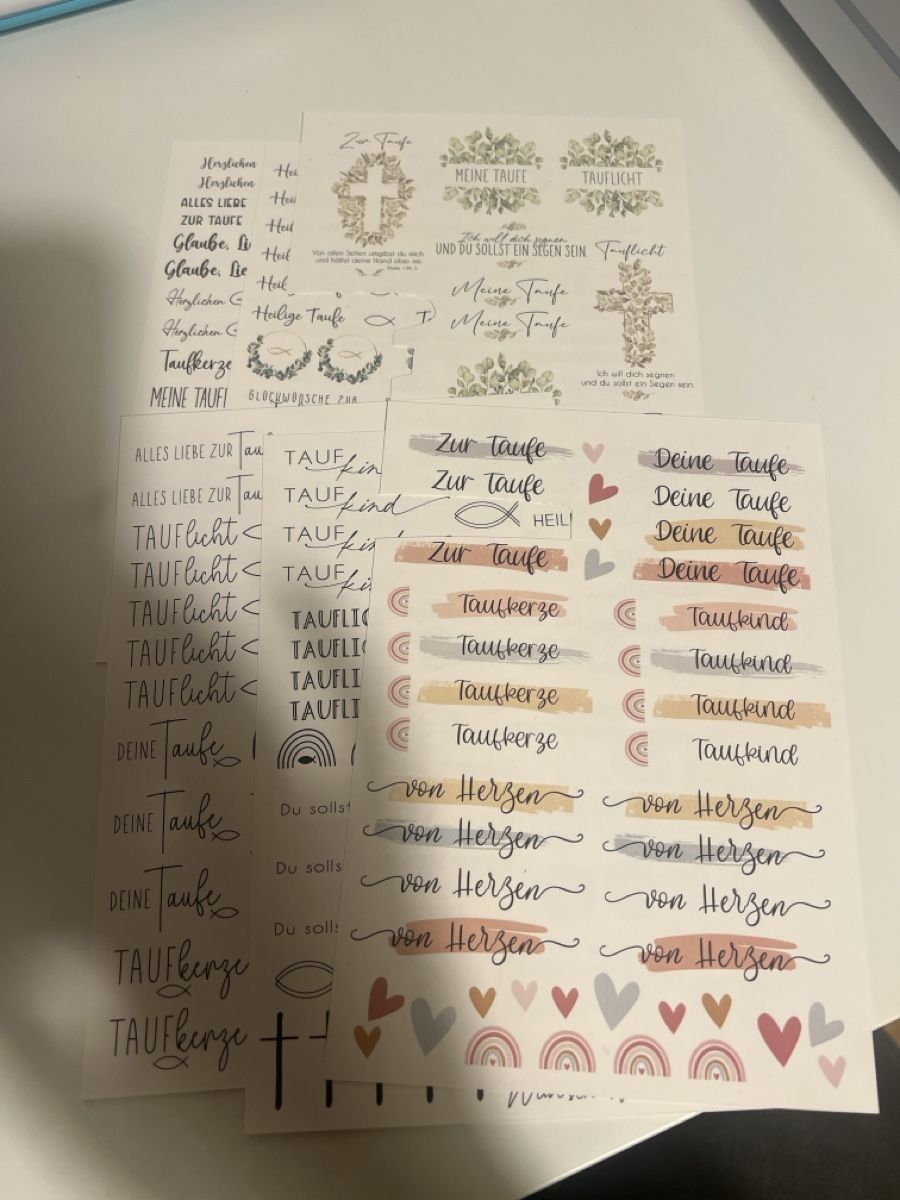 Herzlichen
Herzlichen
ALLES LIEBE
ZUR TAUFE
Glaube,
Glaube,
Herzlichen
Herzlichen
Taufkerze
MEINE
Heilige Taufe
GLÜCKWÜNSCHE ZUR
Zur Taufe
Von allen Seiten umgibst du mich
und hältst deine Hand über mir.
MEINE TAUFE
TAUFLICHT
Ich will dich segnen
UND DU SOLLST EIN SEGEN SEIN.
Tauflicht
Meine Taufe
Meine Taufe
Ich will dich segnen
und du sollst ein Segen sein.
ALLES LIEBE ZUR
ALLES LIEBE ZUR
TAUFlicht
TAUFlicht
TAUFlicht
TAUFlicht
TAUFlicht
DEINE Taufe
DEINE Taufe
DEINE Taufe
TAUFkerze
TAUFkerze
TAUF
TAUFkind
TAUF
TAUF
Du sollst
Du solls
Du
Zur Taufe
Zur Taufe
Zur Taufe
Deine Taufe
Deine Taufe
Deine Taufe
Deine Taufe
Taufkerze
Taufkind
Taufkerze
Taufkind
Taufkerze
Taufkind
Taufkerze
Taufkind
von Herzen
von Herzen
von Herzen
von Herzen
von Herzen
von Herzen
von Herzen
von Herzen